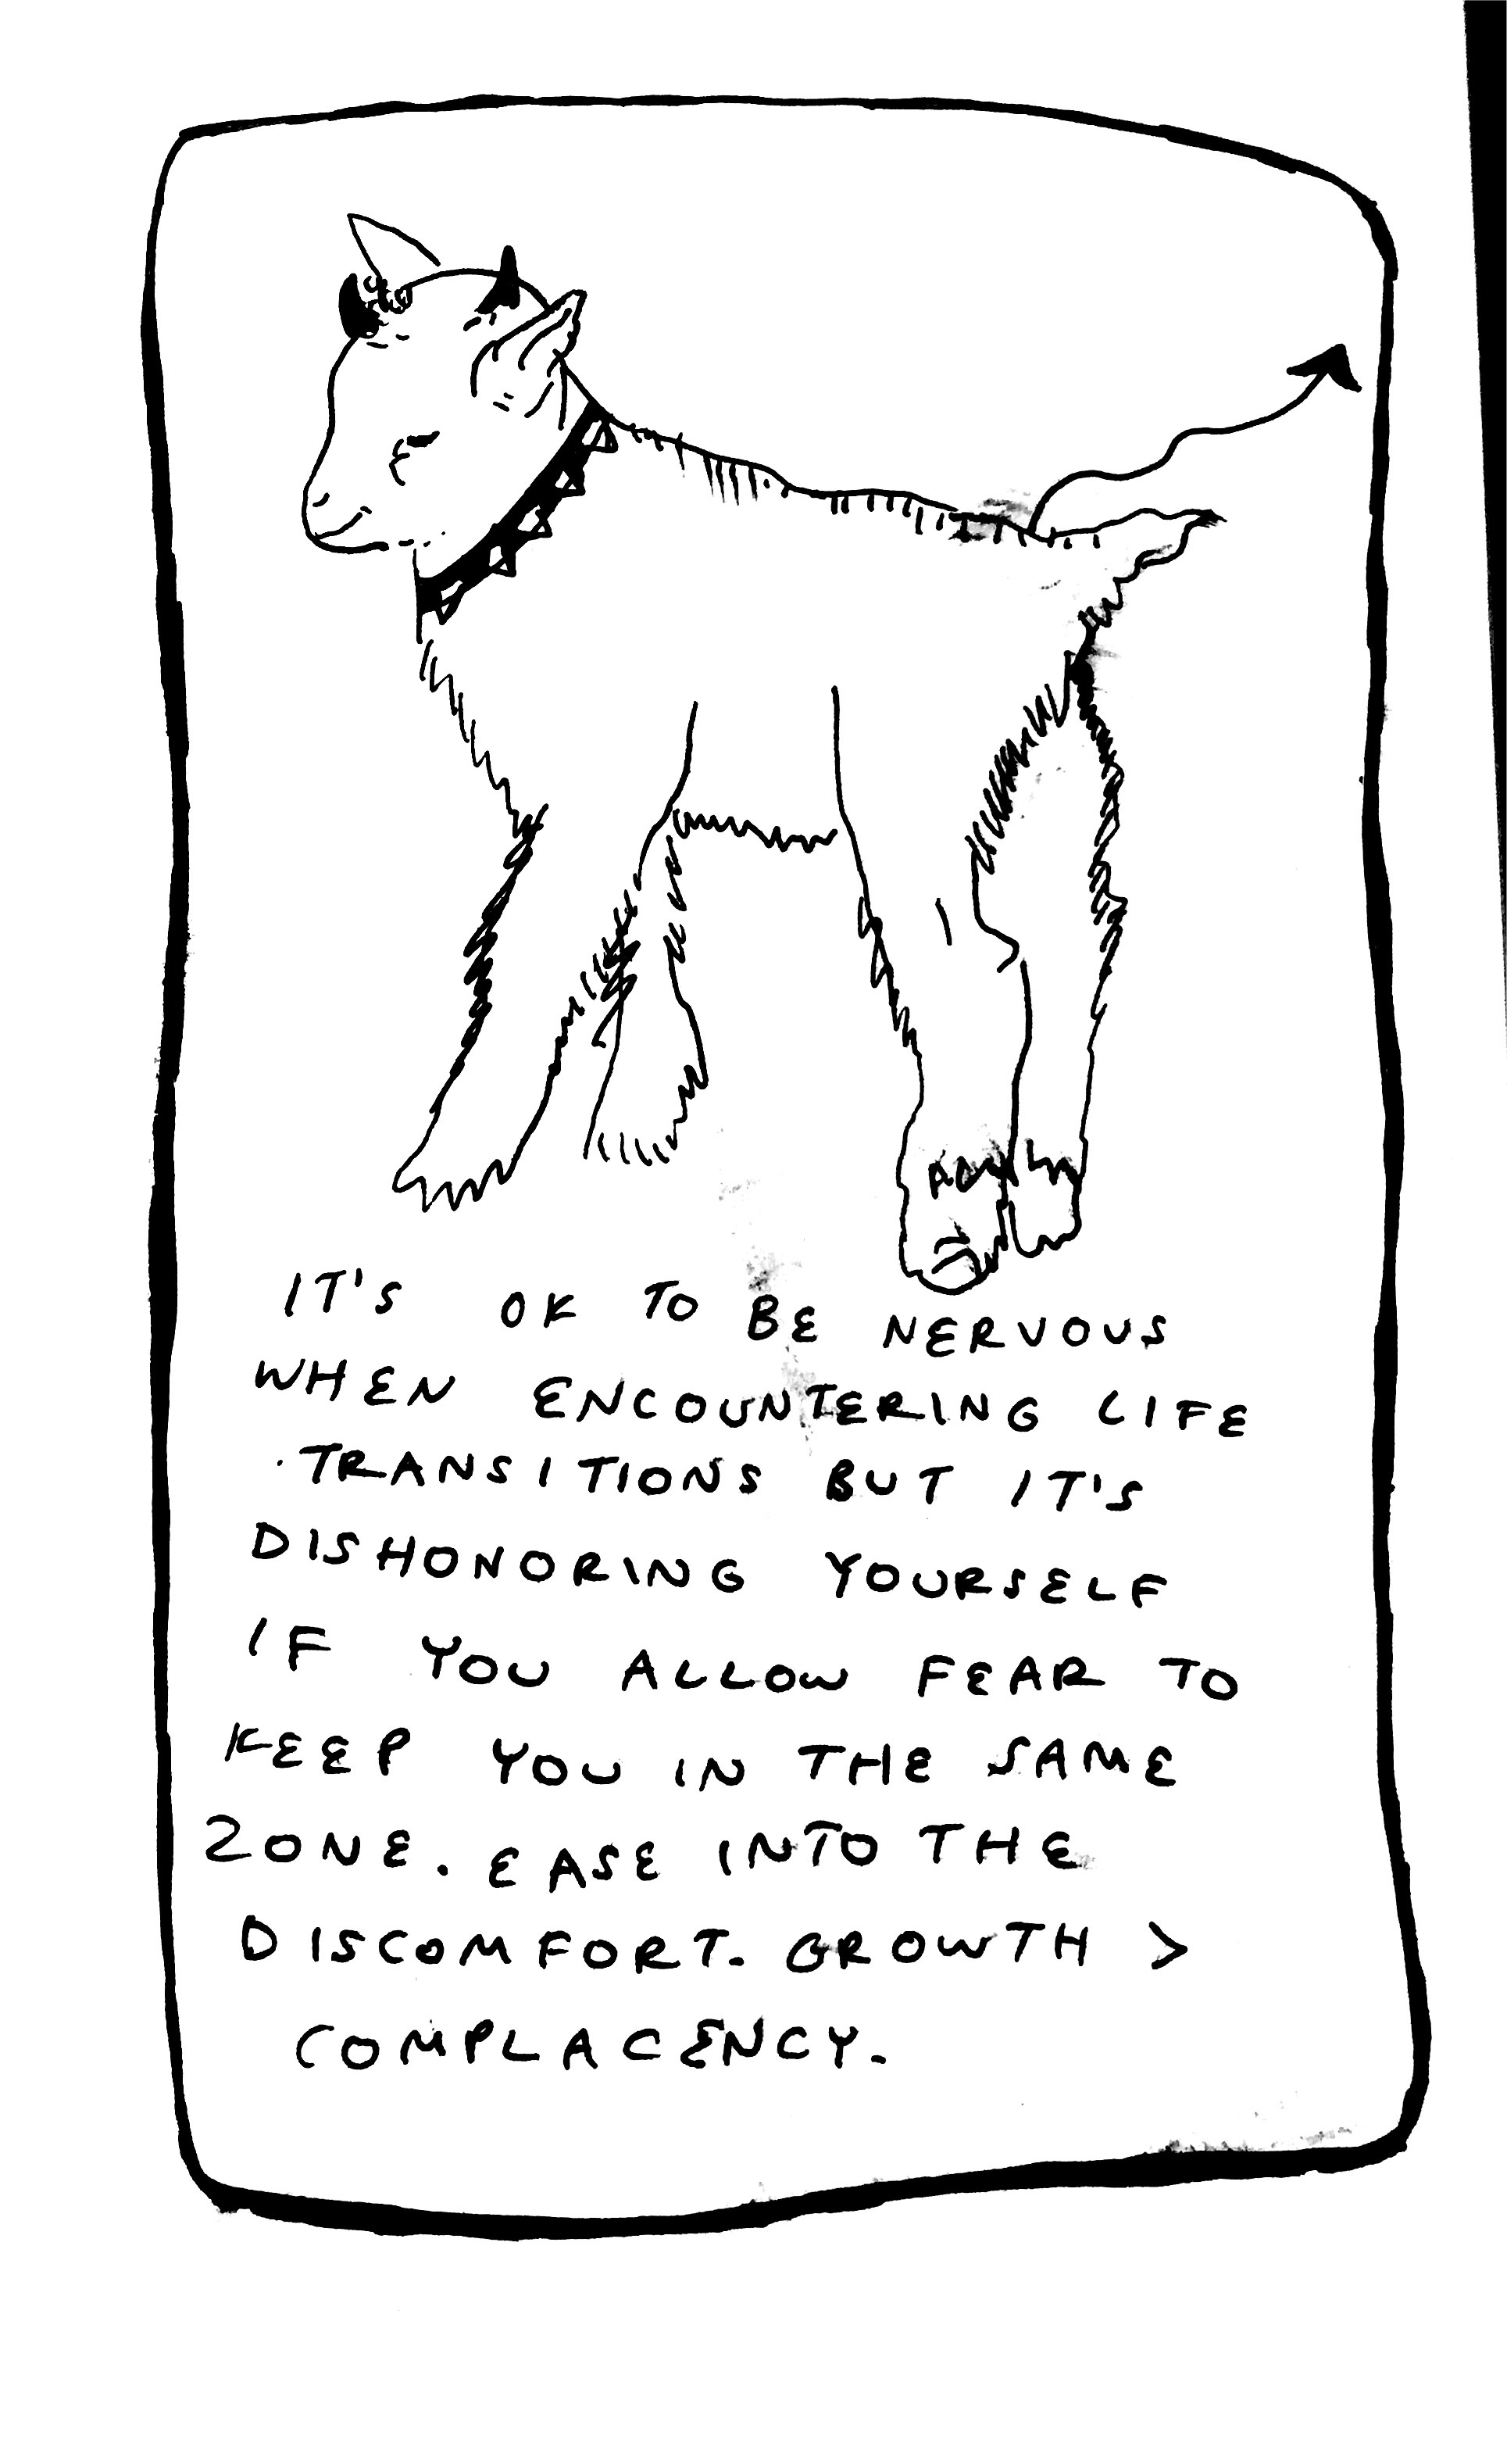 IT'S OK TO BE NERVOUS
WHEN ENCOUNTERING LIFE
TRANSITIONS BUT IT'S
DISHONORING YOURSELF
IF YOU ALLOW FEAR TO
KEEP YOU IN THE SAME
ZONE. EASE INTO THE
DISCOMFORT. GROWTH >
COMPLACENCY.